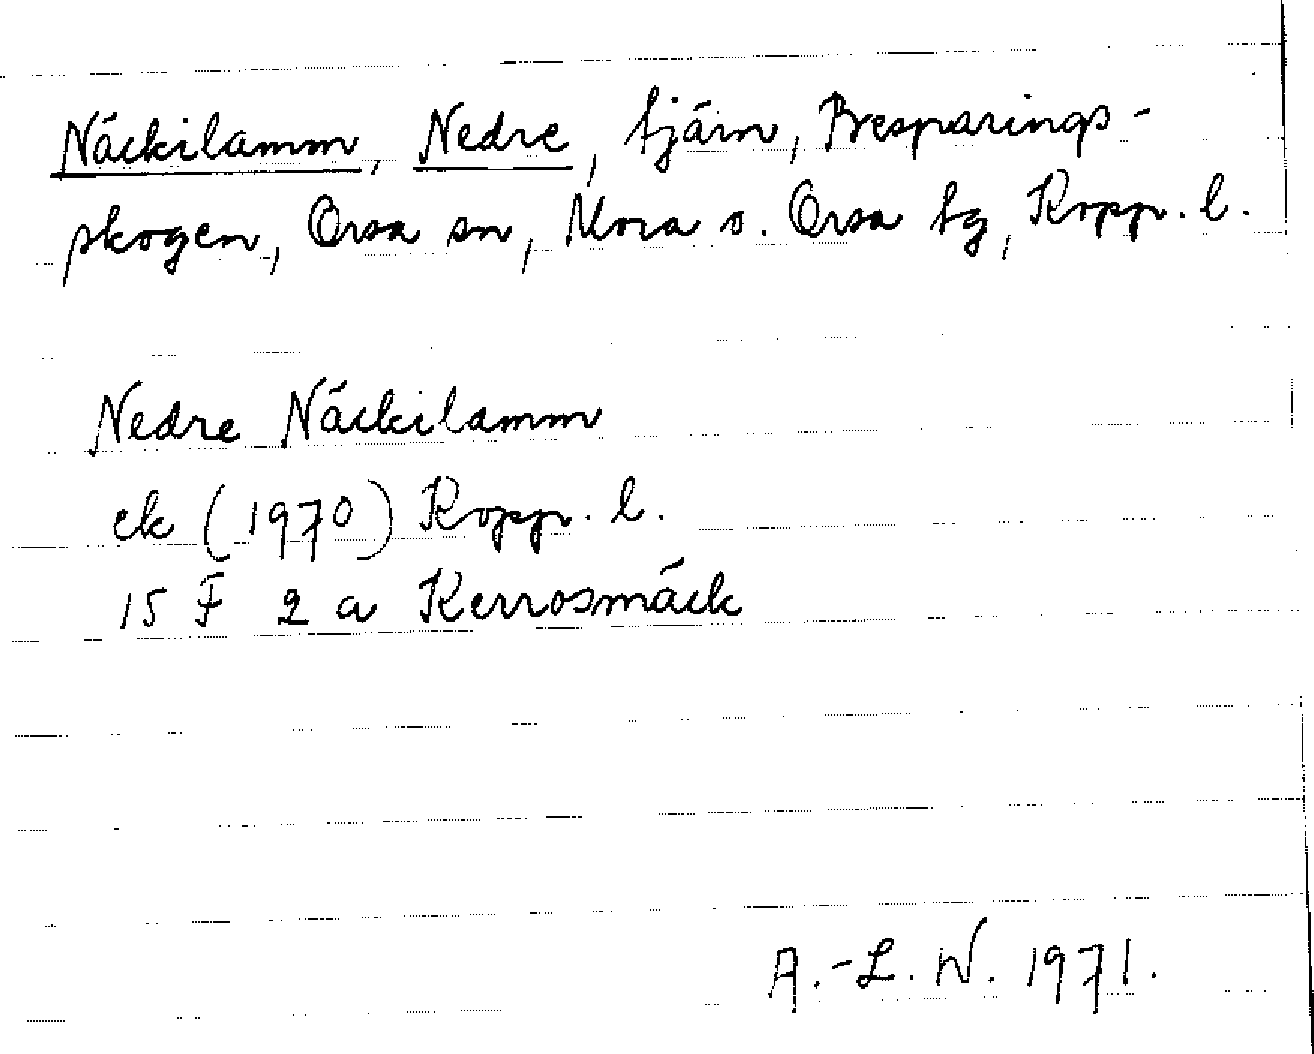 Näckilamm, Nedre, tjärn, Besparings-
skogen, Orsa sn, Mora o. Orsa tg, Kopp. l.
Nedre Näckilamm
ek (1970) Kopp. l.
15 F 2 a Kerrosmäck
A.-L. W. 1971.